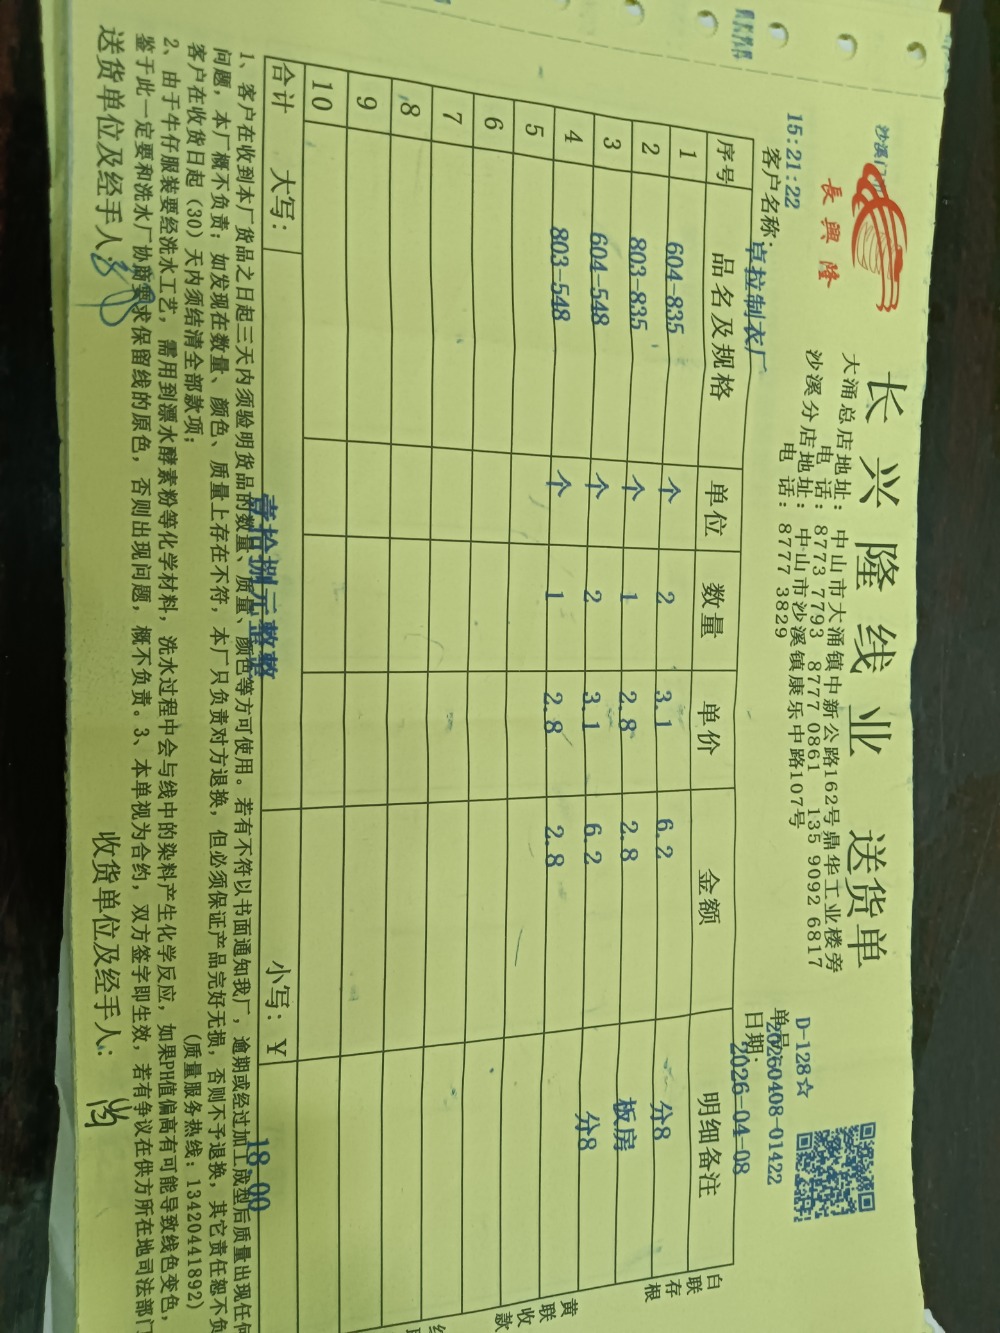 長興隆
长兴隆线业 送货单
大涌总店地址：中山市大涌镇中新公路162号鼎华工业楼旁
电 话：8773 7793 8777 0861 135 9092 6817
沙溪分店地址：中山市沙溪镇康乐中路107号
电 话：8777 3829
D-128☆
15:21:22
单号：20260408-01422
客户名称：卓拉制衣厂
日期：2026-04-08
序号 品名及规格 单位 数量 单价 金额 明细备注
1 604-835 个 2 3.1 6.2 分8
2 803-835 个 1 2.8 2.8 板房
3 604-548 个 2 3.1 6.2 分8
4 803-548 个 1 2.8 2.8
5
6
7
8
9
10
合计 大写：壹拾捌元整整 小写：￥ 18.00
1、客户在收到本厂货品之日起三天内须验明货品的数量、质量、颜色等方可使用。若有不符以书面通知我厂，逾期或经过加工成型后质量出现任何
问题，本厂概不负责；如发现在数量、颜色、质量上存在不符，本厂只负责对方退换，但必须保证产品完好无损，否则不予退换，其它责任恕不负
客户在收货日起（30）天内须结清全部款项； （质量服务热线：13420441892）
2、由于牛仔服装要经洗水工艺，需用到漂水酵素粉等化学材料，洗水过程中会与线中的染料产生化学反应，如果PH值偏高有可能导致线色变色，
鉴于此一定要和洗水厂协商要求保留线的原色，否则出现问题，概不负责。3、本单视为合约，双方签字即生效，若有争议在供方所在地司法部门
送货单位及经手人： 收货单位及经手人：
白联存根
黄联收款